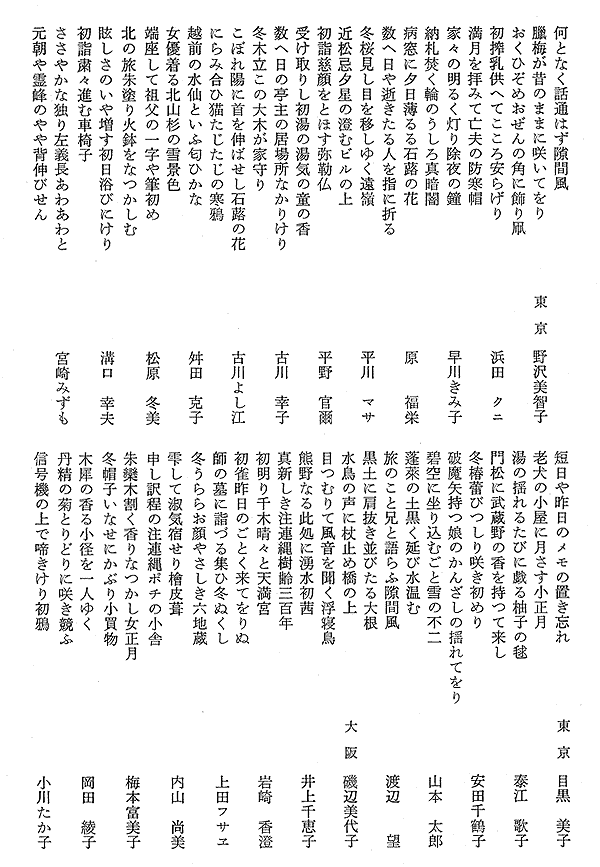 何となく話通はず隙間風
臘梅が昔のままに咲いてをり
東京 野沢美智子
おくひぞめおぜんの角に飾り凧
初搾乳供へてこころ安らげり
浜田 クニ
満月を拝みて亡夫の防寒帽
家々の明るく灯り除夜の鐘
早川きみ子
納札焚く輪のうしろ真暗闇
病窓に夕日薄るる石蕗の花
原 福栄
数へ日や逝きたる人を指に折る
冬桜見し目を移しゆく遠嶺
平川 マサ
近松忌夕星の澄むビルの上
初詣慈顔をとほす弥勒仏
平野 官爾
受け取りし初湯の湯気の童の香
数へ日の亭主の居場所なかりけり
古川 幸子
冬木立この大木が家守り
こぼれ陽に首を伸ばせし石蕗の花
古川よし江
にらみ合ひ猫たじたじの寒鴉
越前の水仙といふ匂ひかな
舛田 克子
女優着る北山杉の雪景色
端座して祖父の一字や筆初め
松原 冬美
北の旅朱塗り火鉢をなつかしむ
眩しさのいや増す初日浴びにけり
溝口 幸夫
初詣粛々進む車椅子
ささやかな独り左義長あわあわと
宮崎みずも
元朝や霊峰のやや背伸びせん
短日や昨日のメモの置き忘れ
東京 目黒 美子
老犬の小屋に月さす小正月
湯の揺れるたびに戯る柚子の毬
泰江 歌子
門松に武蔵野の香を持つて来し
冬椿蕾びつしり咲き初めり
安田千鶴子
破魔矢持つ娘のかんざしの揺れてをり
碧空に坐り込むごと雪の不二
山本 太郎
蓬萊の土黒く延び水温む
旅のこと兄と語らふ隙間風
渡辺 望
黒土に肩抜き並びたる大根
水鳥の声に杖止め橋の上
大阪 磯辺美代子
目つむりて風音を聞く浮寝鳥
熊野なる此処に湧水初茜
井上千恵子
真新しき注連縄樹齢三百年
初明り千木晴々と天満宮
岩崎 香澄
初雀昨日のごとく来てをりぬ
師の墓に詣づる集ひ冬ぬくし
上田フサヱ
冬うららお顔やさしき六地蔵
雫して淑気宿せり檜皮葺
内山 尚美
申し訳程の注連縄ポチの小舎
朱欒木割く香りなつかし女正月
梅本富美子
冬帽子いなせにかぶり小買物
木犀の香る小径を一人ゆく
岡田 綾子
丹精の菊とりどりに咲き競ふ
信号機の上で啼きけり初鴉
小川たか子